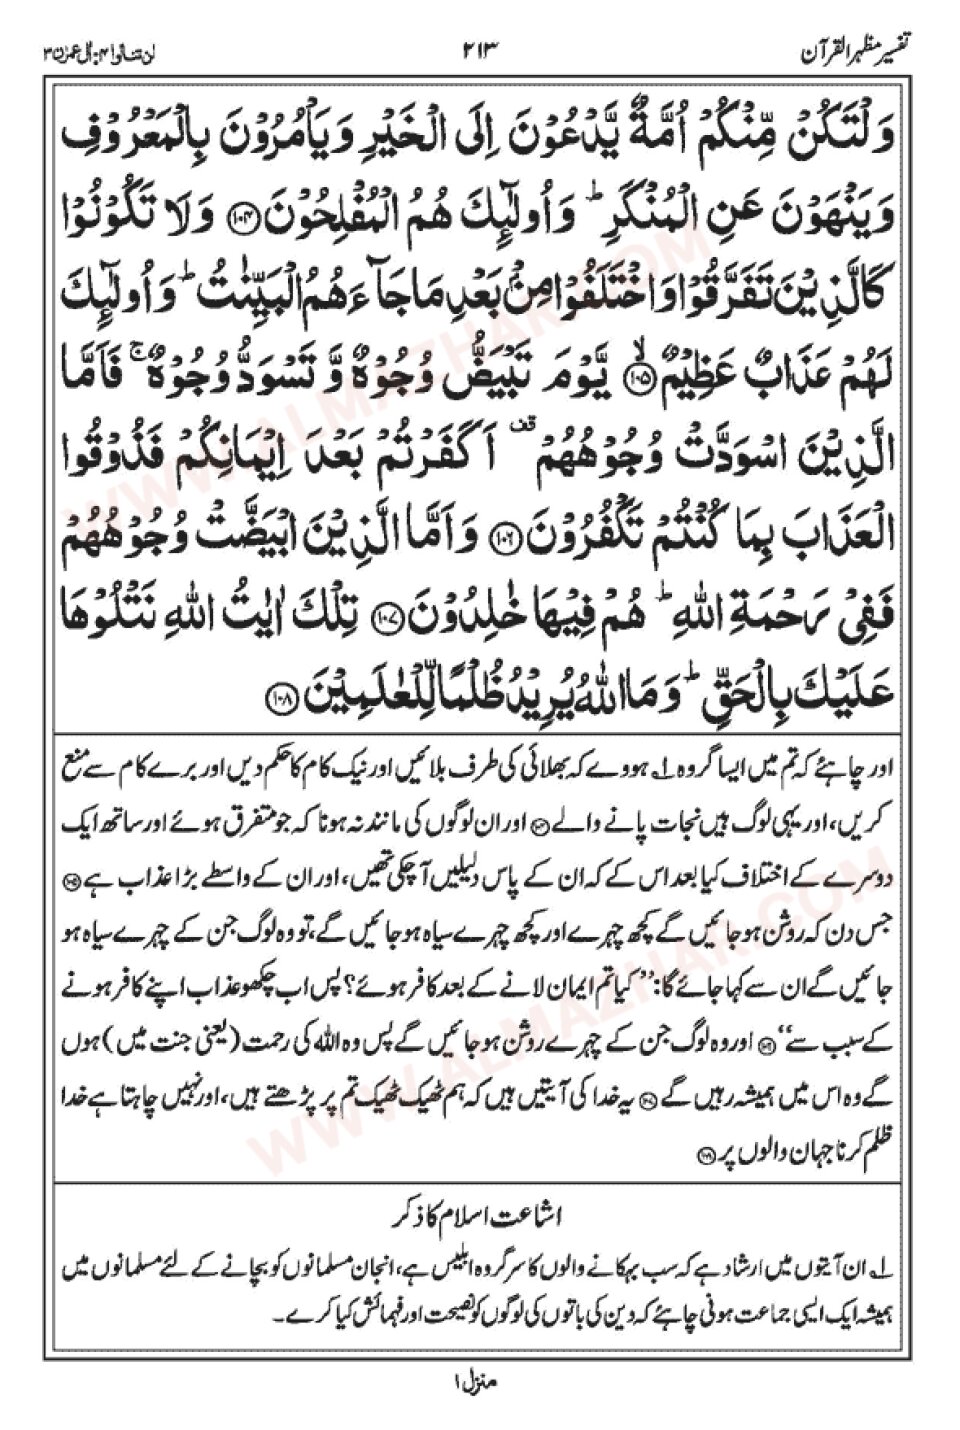 تفسیر مظہر القرآن
۲۱۳
لن تنالوا ۴: اٰل عمرٰن ۳
وَلْتَكُنْ مِّنْكُمْ اُمَّةٌ يَّدْعُوْنَ اِلَى الْخَيْرِ وَيَاْمُرُوْنَ بِالْمَعْرُوْفِ
وَيَنْهَوْنَ عَنِ الْمُنْكَرِ ؕ وَاُولٰٓئِكَ هُمُ الْمُفْلِحُوْنَ ﴿۱۰۴﴾ وَلَا تَكُوْنُوْا
كَالَّذِيْنَ تَفَرَّقُوْا وَاخْتَلَفُوْا مِنْۢ بَعْدِ مَا جَآءَهُمُ الْبَيِّنٰتُ ؕ وَاُولٰٓئِكَ
لَهُمْ عَذَابٌ عَظِيْمٌ ﴿۱۰۵﴾ۙ يَّوْمَ تَبْيَضُّ وُجُوْهٌ وَّ تَسْوَدُّ وُجُوْهٌ ۚ فَاَمَّا
الَّذِيْنَ اسْوَدَّتْ وُجُوْهُهُمْ ۫ اَكَفَرْتُمْ بَعْدَ اِيْمَانِكُمْ فَذُوْقُوا
الْعَذَابَ بِمَا كُنْتُمْ تَكْفُرُوْنَ ﴿۱۰۶﴾ وَاَمَّا الَّذِيْنَ ابْيَضَّتْ وُجُوْهُهُمْ
فَفِيْ رَحْمَةِ اللّٰهِ ؕ هُمْ فِيْهَا خٰلِدُوْنَ ﴿۱۰۷﴾ تِلْكَ اٰيٰتُ اللّٰهِ نَتْلُوْهَا
عَلَيْكَ بِالْحَقِّ ؕ وَمَا اللّٰهُ يُرِيْدُ ظُلْمًا لِّلْعٰلَمِيْنَ ﴿۱۰۸﴾
اور چاہئے کہ تم میں ایسا گروہ ۱؎ ہووے کہ بھلائی کی طرف بلائیں اور نیک کام کا حکم دیں اور برے کام سے منع
کریں، اور یہی لوگ ہیں نجات پانے والے ﴿۱۰۴﴾ اور ان لوگوں کی مانند نہ ہونا کہ جو متفرق ہوئے اور ساتھ ایک
دوسرے کے اختلاف کیا بعد اس کے کہ ان کے پاس دلیلیں آچکی تھیں، اور ان کے واسطے بڑا عذاب ہے ﴿۱۰۵﴾
جس دن کہ روشن ہوجائیں گے کچھ چہرے اور کچھ چہرے سیاہ ہوجائیں گے، تو وہ لوگ جن کے چہرے سیاہ ہو
جائیں گے ان سے کہا جائے گا: ”کیا تم ایمان لانے کے بعد کافر ہوئے؟ پس اب چکھو عذاب اپنے کافر ہونے
کے سبب سے“ ﴿۱۰۶﴾ اور وہ لوگ جن کے چہرے روشن ہوجائیں گے پس وہ اللہ کی رحمت (یعنی جنت میں) ہوں
گے وہ اس میں ہمیشہ رہیں گے ﴿۱۰۷﴾ یہ خدا کی آیتیں ہیں کہ ہم ٹھیک ٹھیک تم پر پڑھتے ہیں، اور نہیں چاہتا ہے خدا
ظلم کرنا جہان والوں پر ﴿۱۰۸﴾
اشاعت اسلام کا ذکر
۱؎ ان آیتوں میں ارشاد ہے کہ سب بہکانے والوں کا سرگروہ ابلیس ہے، انجان مسلمانوں کو بچانے کے لئے مسلمانوں میں
ہمیشہ ایک ایسی جماعت ہونی چاہئے کہ دین کی باتوں کی لوگوں کو نصیحت اور فہمائش کیا کرے۔
منزل ۱
WWW.ALMAZHAR.COM
WWW.ALMAZHAR.COM